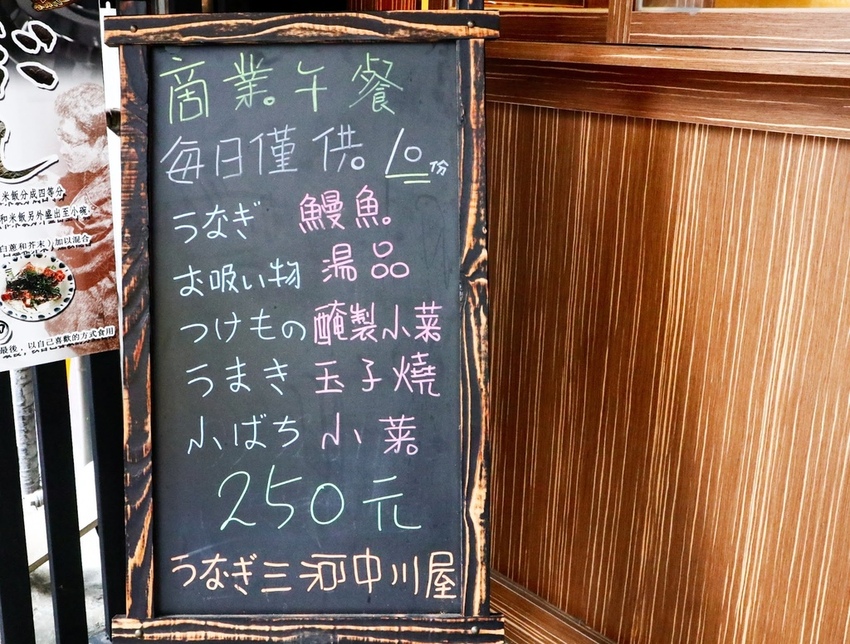 商業午餐
每日僅供10份
うなぎ 鰻魚
お吸い物 湯品
つけもの 醃製小菜
うまき 玉子燒
小ばち 小菜
250元
うなぎ三河中川屋
米飯分成四等分
和米飯另外盛出至小碗
白蔥和芥末)加以混合
最後，以自己喜歡的方式食用